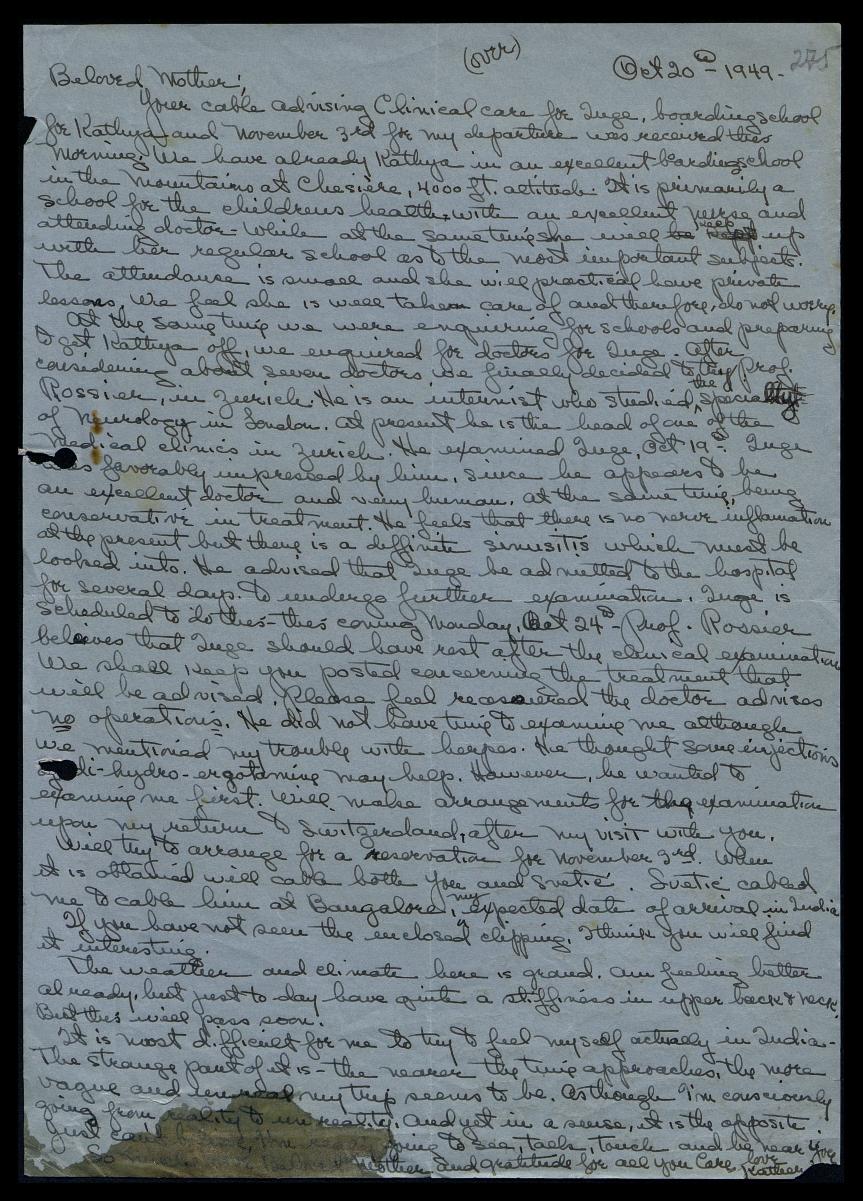 (over)
Oct 20th - 1949.
275
Beloved Mother;
Your cable advising Clinical care for Inge, boarding school
for Kathya and November 3rd for my departure was received this
morning. We have already Kathya in an excellent boarding school
in the mountains at Chesière, 4000 ft. altitude. It is primarily a
school for the childrens health, with an excellent nurse and
attending doctor - while at the same time she will keep up
with her regular school as to the most important subjects.
The attendance is small and she will practical have private
lessons. We feel she is well taken care of and therefore, do not worry.
At the same time we were enquiring for schools and preparing
to get Kathya off, we enquired for doctors for Inge. After
considering about seven doctors, we finally decided to try Prof.
Rossier, in Zurich. He is an internist who studied the special
of Neurology in London. At present he is the head of one of the
medical clinics in Zurich. He examined Inge, Oct 19th. Inge
was favorably impressed by him, since he appears to be
an excellent doctor and very human, at the same time, being
conservative in treatment. He feels that there is no nerve inflamation
at the present but there is a diffinite sinusitis which must be
looked into. He advised that Inge be admitted to the hospital
for several days to undergo further examination. Inge is
scheduled to do this - this coming Monday, Oct 24th - Prof. Rossier
believes that Inge should have rest after the clinical examination
We shall keep you posted concerning the treatment that
will be advised. Please feel reassured the doctor advises
no operations. He did not have time to examine me although
we mentioned my trouble with herpes. He thought some injections
di-hydro-ergotamine may help. However, he wanted to
examine me first. Will make arrangements for the examination
upon my return to Switzerland, after my visit with you.
Will try to arrange for a reservation for November 3rd. When
it is obtained will cable both you and Svetić. Svetić cabled
me to cable him at Bangalore, my expected date of arrival in India
If you have not seen the enclosed clipping, I think you will find
it interesting.
The weather and climate here is grand. Am feeling better
already, but just to day have quite a stiffness in upper back & neck.
But this will pass soon.
It is most difficult for me to try to feel myself actually in India -
The strange part of it is - the nearer the time approaches, the more
vague and unreal my trip seems to be. As though I'm consciously
going from reality to unreality. And yet in a sense, it is the opposite.
Just can't going to see, talk, touch and be near you
So Mother and gratitude for all you Care, love
Kathleen